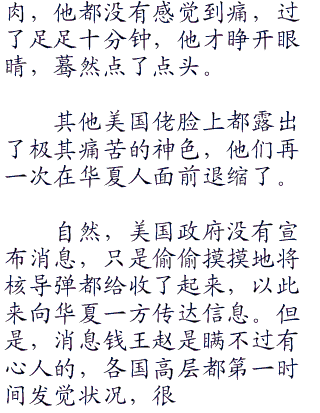 肉，他都没有感觉到痛，过
了足足十分钟，他才睁开眼
睛，蓦然点了点头。
其他美国佬脸上都露出
了极其痛苦的神色，他们再
一次在华夏人面前退缩了。
自然，美国政府没有宣
布消息，只是偷偷摸摸地将
核导弹都给收了起来，以此
来向华夏一方传达信息。但
是，消息钱王赵是瞒不过有
心人的，各国高层都第一时
间发觉状况，很